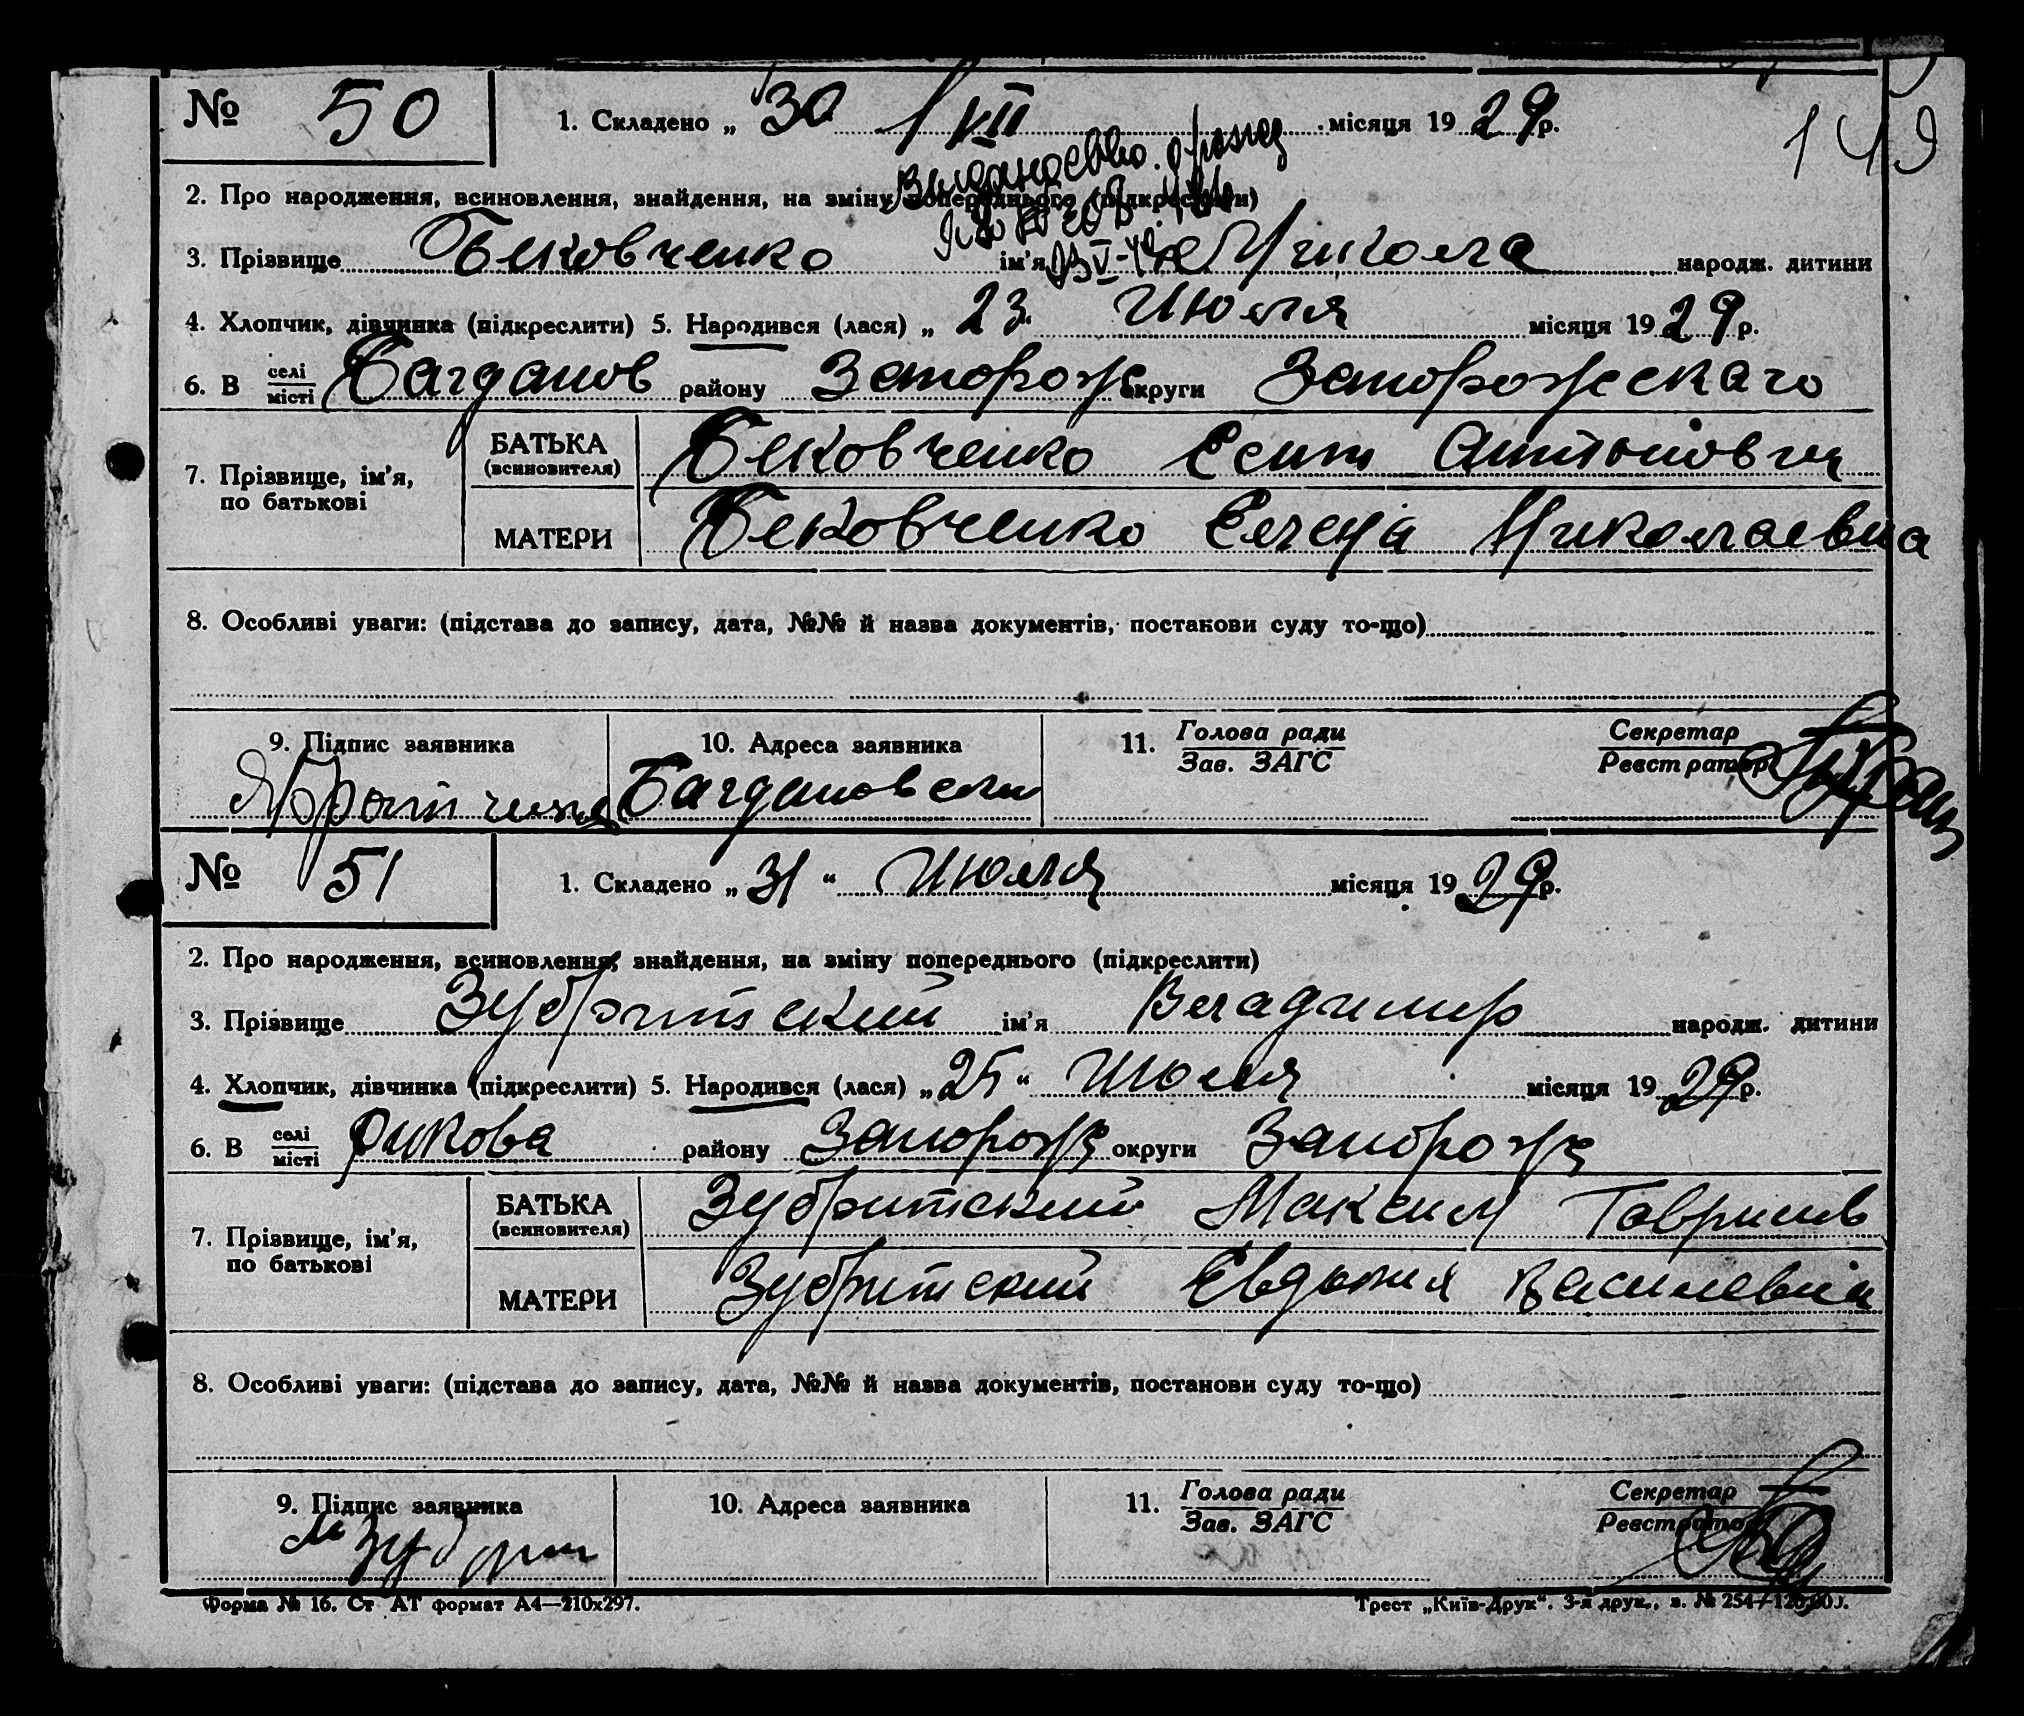 149
№ 50 1. Складено „ 30 / VII місяця 19 29 р.
2. Про народження, всиновлення, знайдення, на зміну попереднього (підкреслити)
3. Прізвище Бековченко ім'я Никола народж. дитини
4. Хлопчик, дівчинка (підкреслити) 5. Народився (лася) „ 23 Июля місяця 19 29 р.
6. В селі місті Багданов району Запорож округи Запорожскаго
7. Прізвище, ім'я, по батькові
БАТЬКА (всиновителя) Бековченко Есип Антонович
МАТЕРИ Бековченко Елена Николаевна
8. Особливі уваги: (підстава до запису, дата, №№ й назва документів, постанови суду то-що)
9. Підпис заявника 10. Адреса заявника 11. Голова ради Зав. ЗАГС Секретар Реєстратор
Багдановка
№ 51 1. Складено „ 31 “ Июля місяця 19 29 р.
2. Про народження, всиновлення, знайдення, на зміну попереднього (підкреслити)
3. Прізвище Зубритский ім'я Владимир народж. дитини
4. Хлопчик, дівчинка (підкреслити) 5. Народився (лася) „ 25 “ Июля місяця 19 29 р.
6. В селі місті Рикова району Запорож округи Запорож
7. Прізвище, ім'я, по батькові
БАТЬКА (всиновителя) Зубритский Максим Гаврилов
МАТЕРИ Зубритский Евдокия Василевна
8. Особливі уваги: (підстава до запису, дата, №№ й назва документів, постанови суду то-що)
9. Підпис заявника 10. Адреса заявника 11. Голова ради Зав. ЗАГС Секретар Реєстратор
М Зубрит
Форма № 16. Ст АТ формат А4—210х297. Трест „Київ-Друк“. 3-я друк., з. № 254